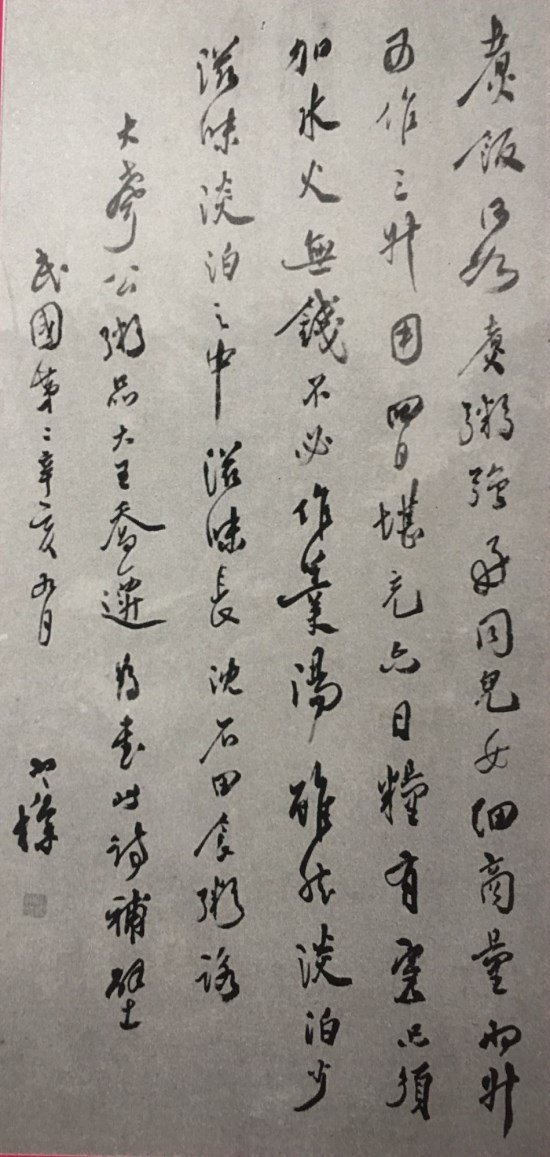 煑飯何如煑粥強好同兒女細商量兩升
可作三升用四日堪充六日糧有客只須
加水火無錢不必作羹湯雖然淡泊少
滋味淡泊之中滋味長沈石田食粥詩
大公粥品大王喬遷為書此詩補壁
民國第二辛亥九月